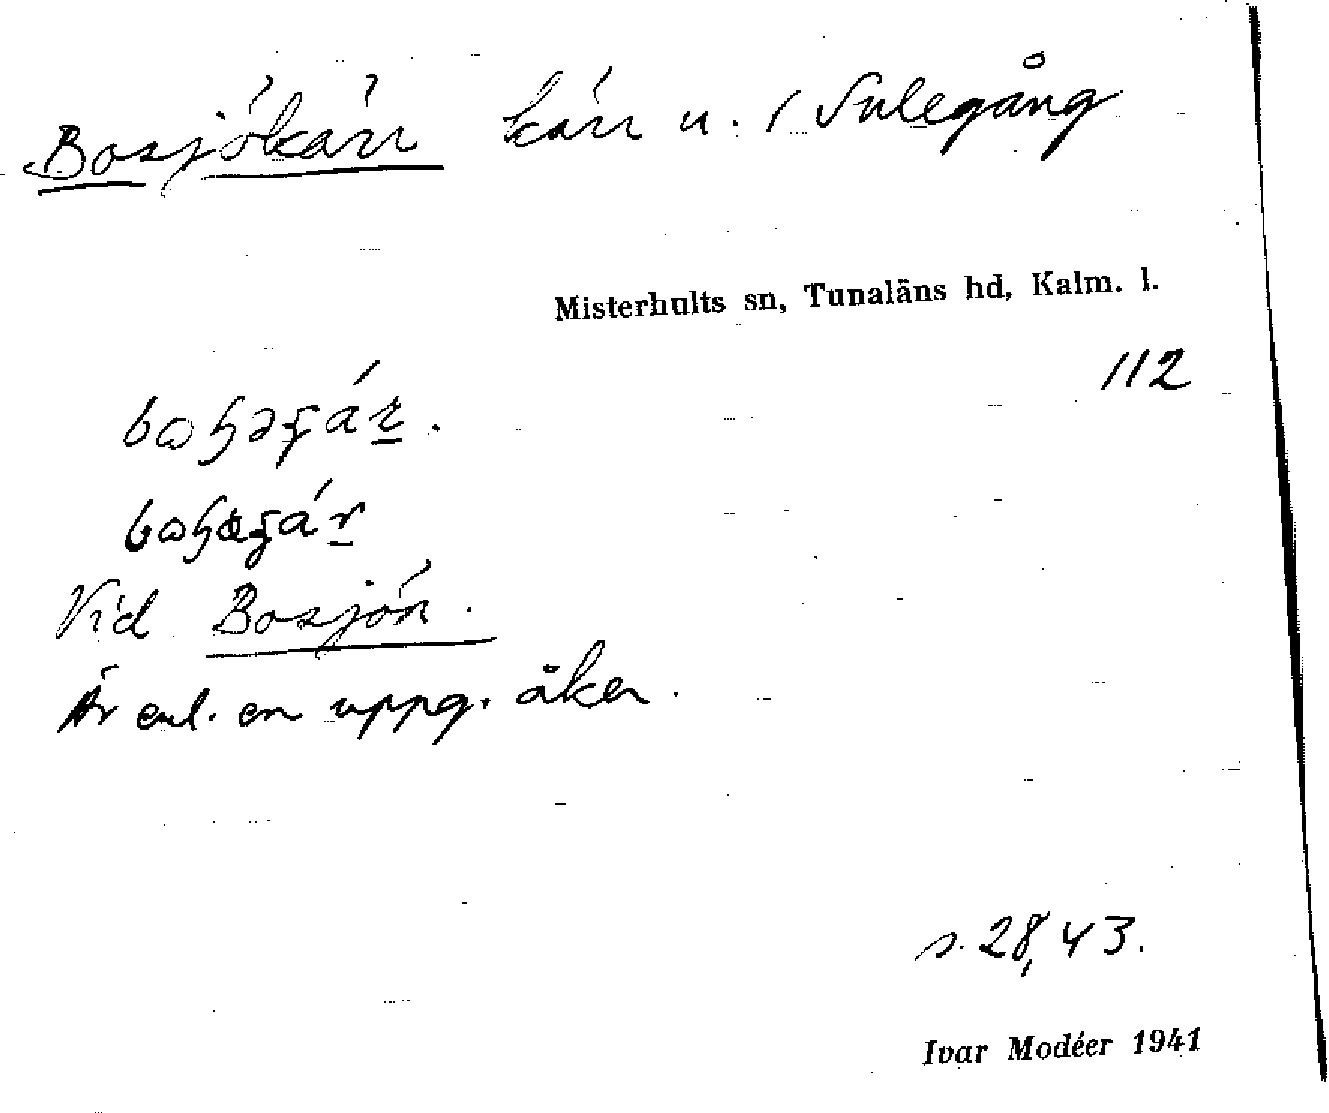 Bosjökärr kärr u. / Sulegång
Misterhults sn, Tunaläns hd, Kalm. l.
112
Vid Bosjön.
Är enl. en uppg. åker.
s. 28, 43.
Ivar Modéer 1941